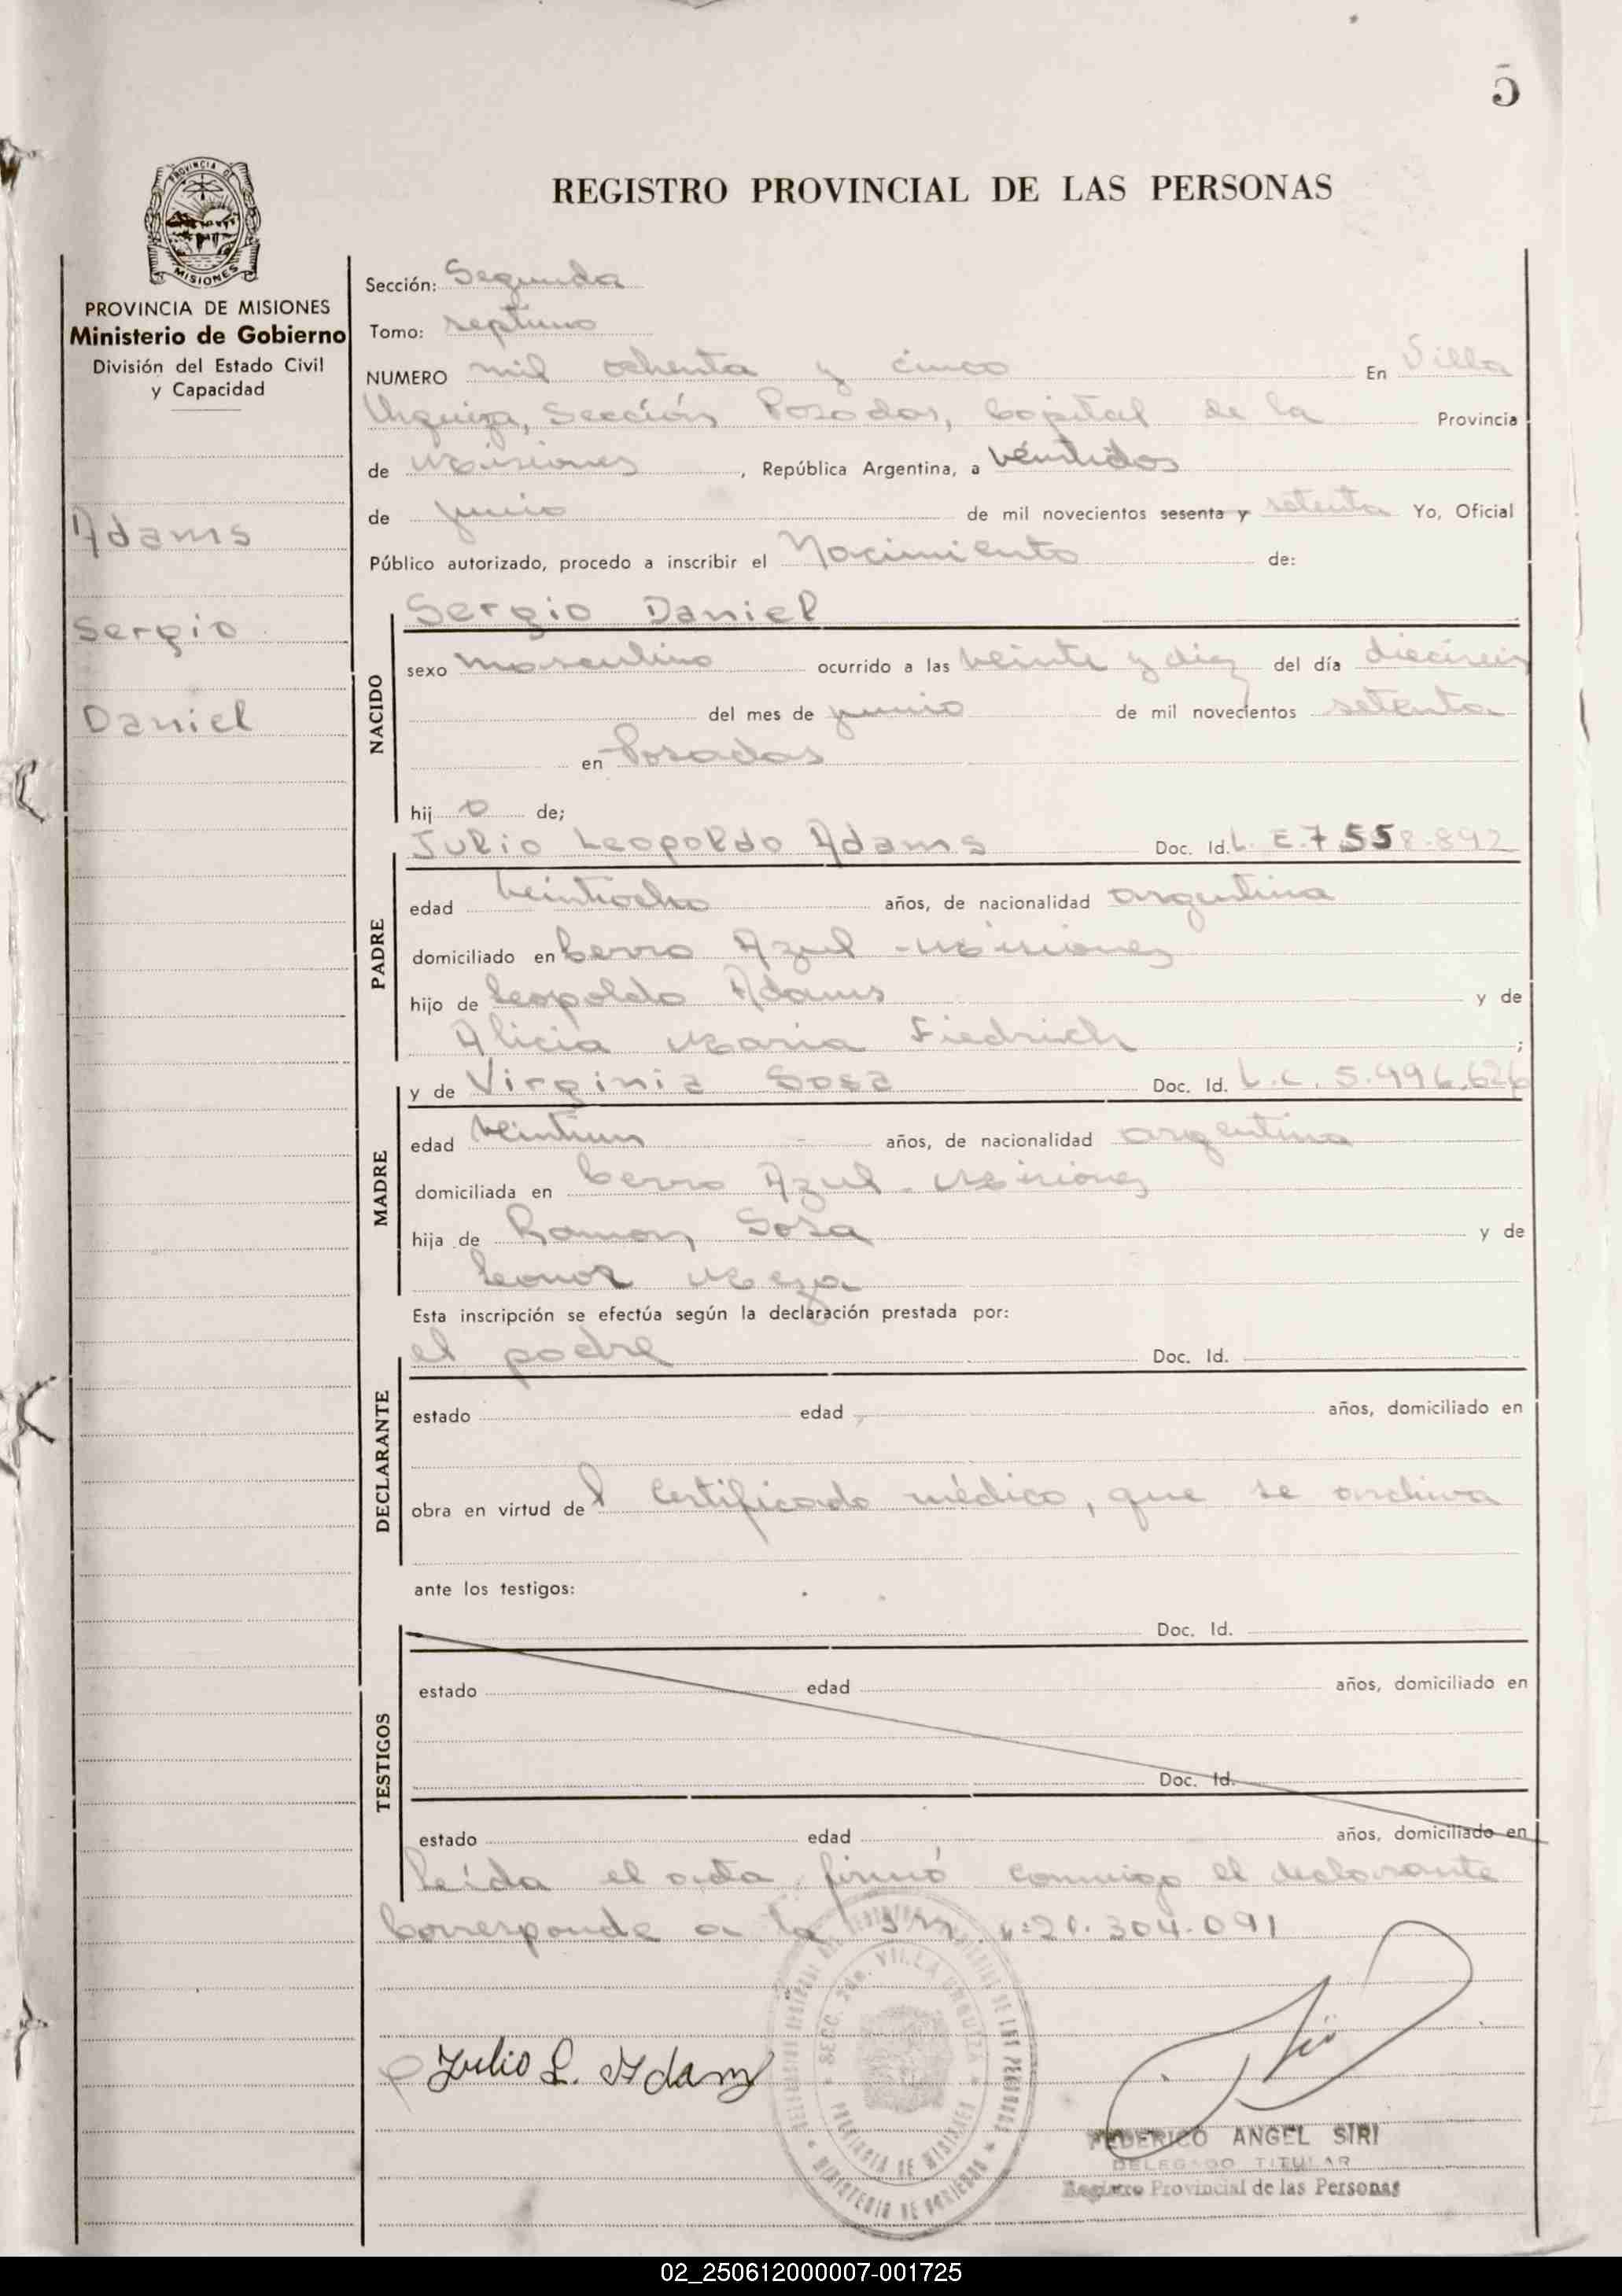 5
REGISTRO PROVINCIAL DE LAS PERSONAS
PROVINCIA DE MISIONES
PROVINCIA DE MISIONES
Ministerio de Gobierno
División del Estado Civil
y Capacidad
Adams
Sergio
Daniel
Sección: Segunda
Tomo: septimo
NUMERO mil ochenta y cinco En Villa
Urquiza, Sección Posadas, Capital de la Provincia
de Misiones, República Argentina, a veintidos
de junio de mil novecientos sesenta y setenta Yo, Oficial
Público autorizado, procedo a inscribir el Nacimiento de:
NACIDO
Sergio Daniel
sexo masculino ocurrido a las veinte y diez del día dieciseis
del mes de junio de mil novecientos setenta
en Posadas
hij o de;
PADRE
Julio Leopoldo Adams Doc. Id. L. E. 7.558.892
edad veintiocho años, de nacionalidad argentina
domiciliado en Cerro Azul - Misiones
hijo de Leopoldo Adams y de
Alicia Maria Fiedrich ;
MADRE
y de Virginia Sosa Doc. Id. L.C. 5.996.626
edad veintiun años, de nacionalidad argentina
domiciliada en Cerro Azul - Misiones
hija de Ramon Sosa y de
Leonor Meza
Esta inscripción se efectúa según la declaración prestada por:
DECLARANTE
el padre Doc. Id.
estado edad años, domiciliado en
obra en virtud del certificado médico, que se archiva
ante los testigos:
TESTIGOS
Doc. Id.
estado edad años, domiciliado en
Doc. Id.
estado edad años, domiciliado en
Leída el acta, firmó conmigo el declarante
Corresponde a la 21.304.091
SECC. 2da. VILLA URQUIZA
PROVINCIA DE MISIONES
MINISTERIO DE GOBIERNO
Julio L. Adams
FEDERICO ANGEL SIRI
DELEGADO TITULAR
Registro Provincial de las Personas
02_250612000007-001725